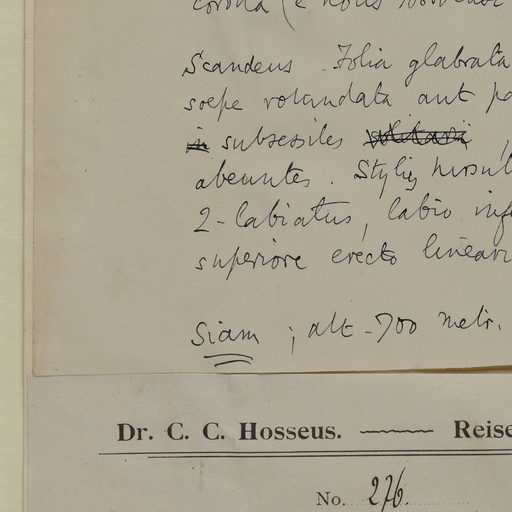 corolla (e
Scandens. Folia glabrata
saepe rotundata aut
subsessiles
abeuntes. Stylis hirsut
2-labiatus, labio inf
superiore erecto lineari
Siam ; alt - 700 metr.
Dr. C. C. Hosseus. Reise
No. 276.